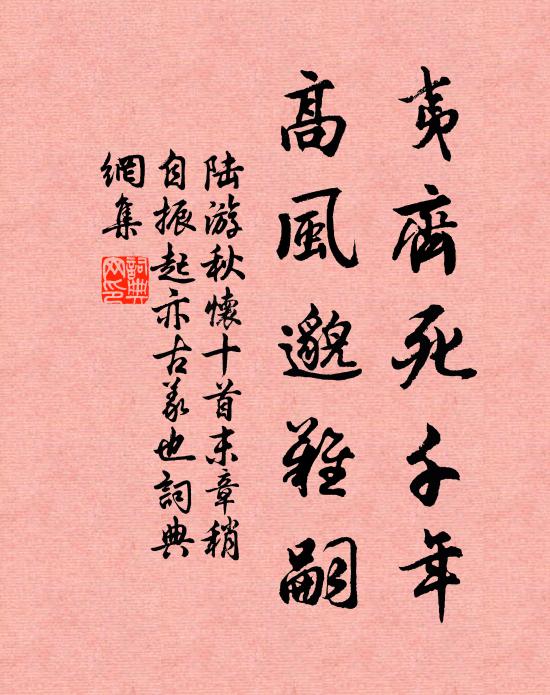 夷齊死千年
高風邈難嗣
陸游秋懷十首末章稍
自振起亦古義也詞典
網集
詞典網印